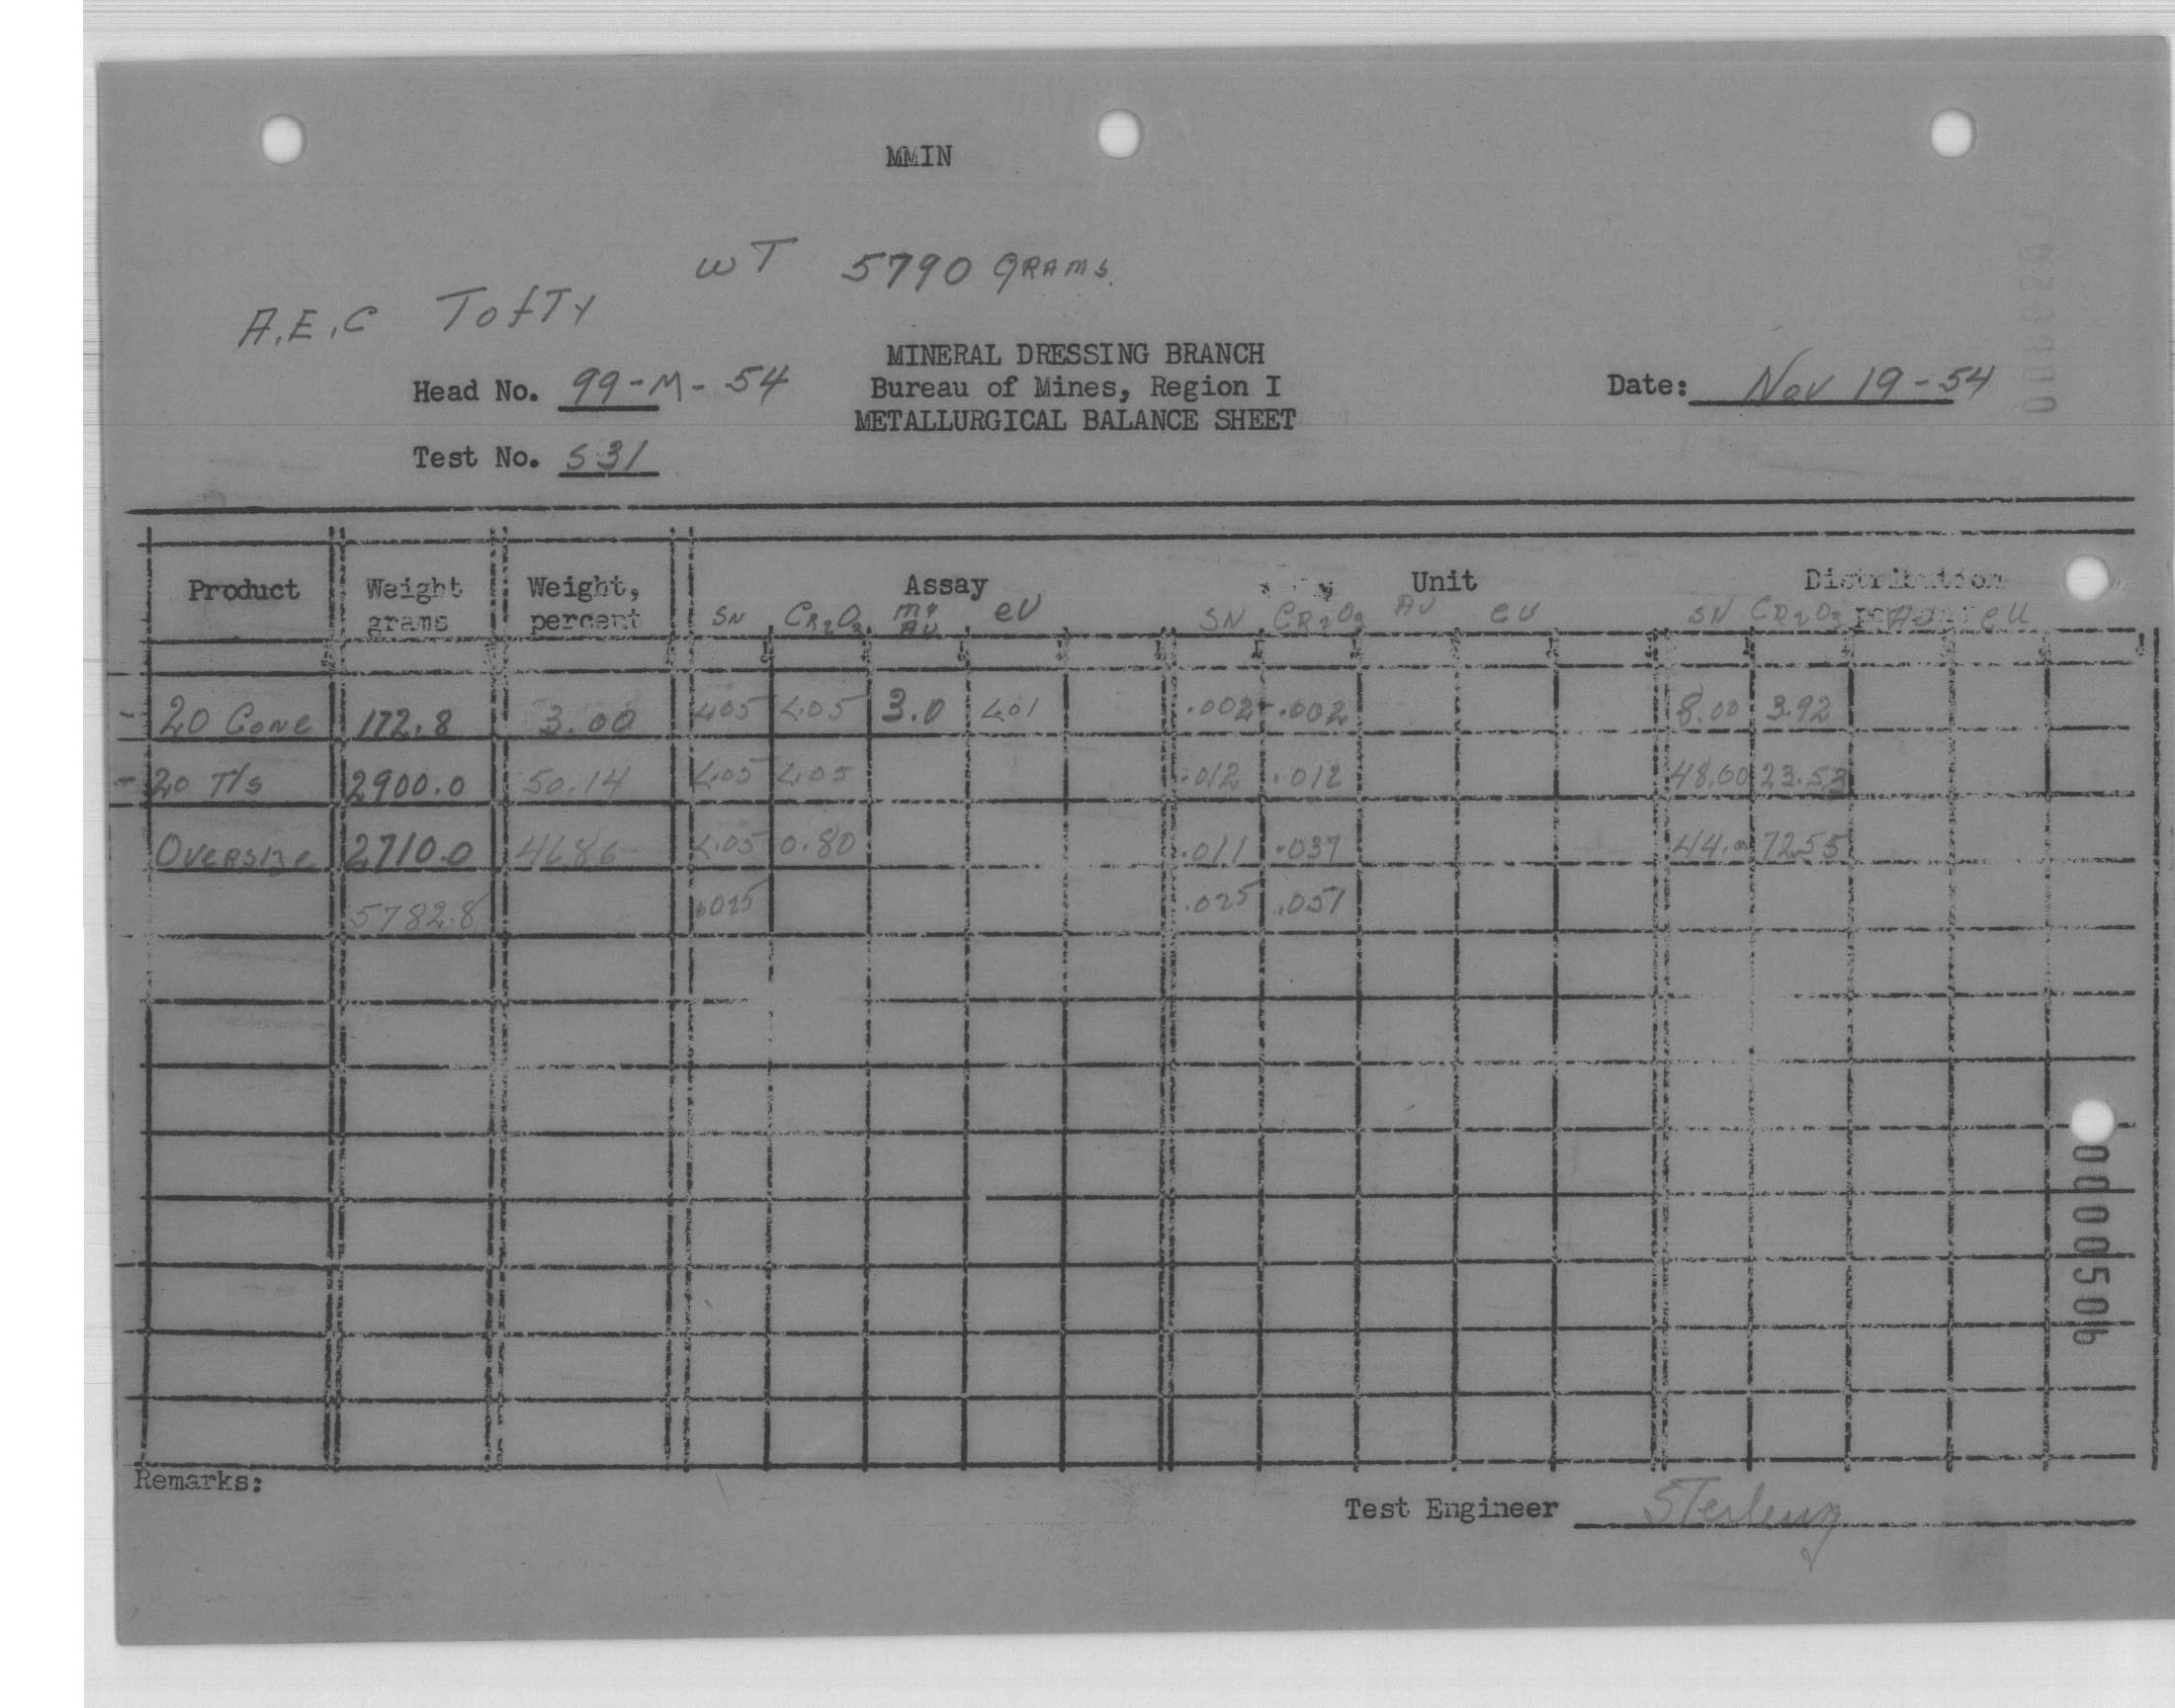 MMIN
WT 5790 GRAMS.
A.E.C TofTy
MINERAL DRESSING BRANCH
Head No. 99-M-54 Bureau of Mines, Region I Date: Nov 19-54
METALLURGICAL BALANCE SHEET
Test No. S31
Product Weight grams Weight, percent Assay Unit Distribution
SN CR2O3 mg AU eU SN CR2O3 AU eU SN CR2O3 AU eU
-20 Conc 172.8 3.00 <.05 <.05 3.0 <.01 .002 .002 8.00 3.92
-20 T/s 2900.0 50.14 <.05 <.05 .012 .012 48.00 23.53
Oversize 2710.0 46.86 <.05 0.80 .011 .037 44.0 72.55
5782.8 .025 .025 .051
Remarks:
Test Engineer Sterling